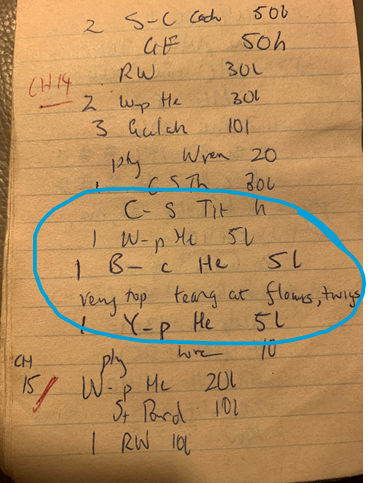 2 S-C Cock 50l
GF 50h
CH 14 RW 30l
2 W-p He 30l
3 Galah 10l
pty Wren 20
1 C S Th 30l
C-S Tit h
1 W-p He 5l
1 B-c He 5l
very top tearing at flowers, twigs
1 Y-p He 5l
pty 10
CH 15 W-p He 20l
St Pard 10l
1 RW 10l